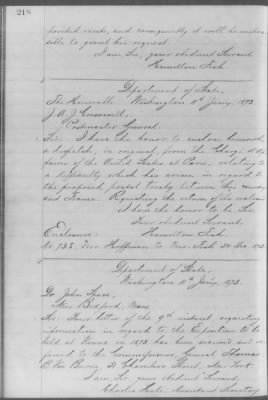 218
and consequently it will be impos-
sible to grant his request.
I am, Sir, your obedient Servant
Hamilton Fish
Department of State,
The Honorable Washington 11th Jany, 1873.
J. A. J. Creswell,
Postmaster General.
Sir: I have the honor to enclose herewith
a despatch, in original, from the Chargé d'Af-
faires of the United States at Paris, relating to
a difficulty which has arisen in regard to
the proposed postal treaty between this country
and France. Requesting the return of the enclosure
I have the honor to be, Sir,
Your obedient Servant,
Enclosure: Hamilton Fish.
No. 735 Mr. Hoffman to Mr. Fish
Department of State,
Washington 11th Jany, 1873.
To John
New Bedford, Mass
Sir: Your letter of the 9th instant requesting
information in regard to the Exposition to be
held at Vienna in 1873 has been received and re-
ferred to the Commissioner General Thomas
B. Van Buren, 51 Chambers Street, New York.
I am, Sir, your obedient Servant,
Charles Hale, Assistant Secretary